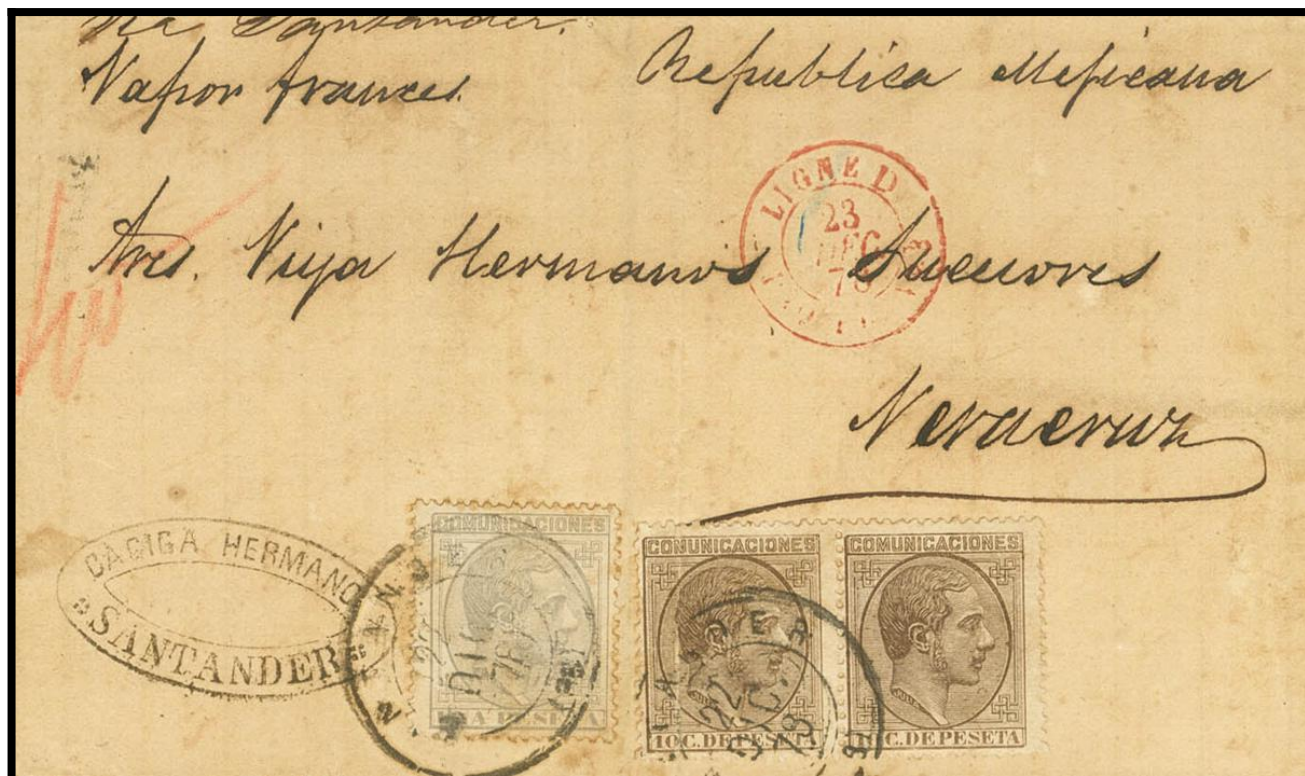 Via Santander.
Vapor frances
Republica Mejicana
LIGNE D
23
DEC
78
Sres. Viya Hermanos Sucesores
Veracruz
CAGIGA HERMANO
SANTANDER
COMUNICACIONES
UNA PESETA
DIC
78
COMUNICACIONES
10 C. DE PESETA
COMUNICACIONES
10 C. DE PESETA
22
DIC.
78